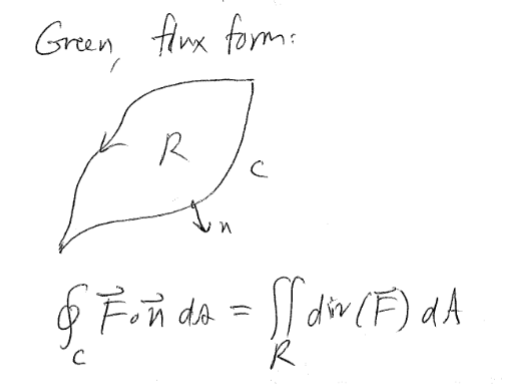 Green, flux form:
R
C
n
∮_C F⃗·n⃗ ds = ∬_R div(F⃗) dA